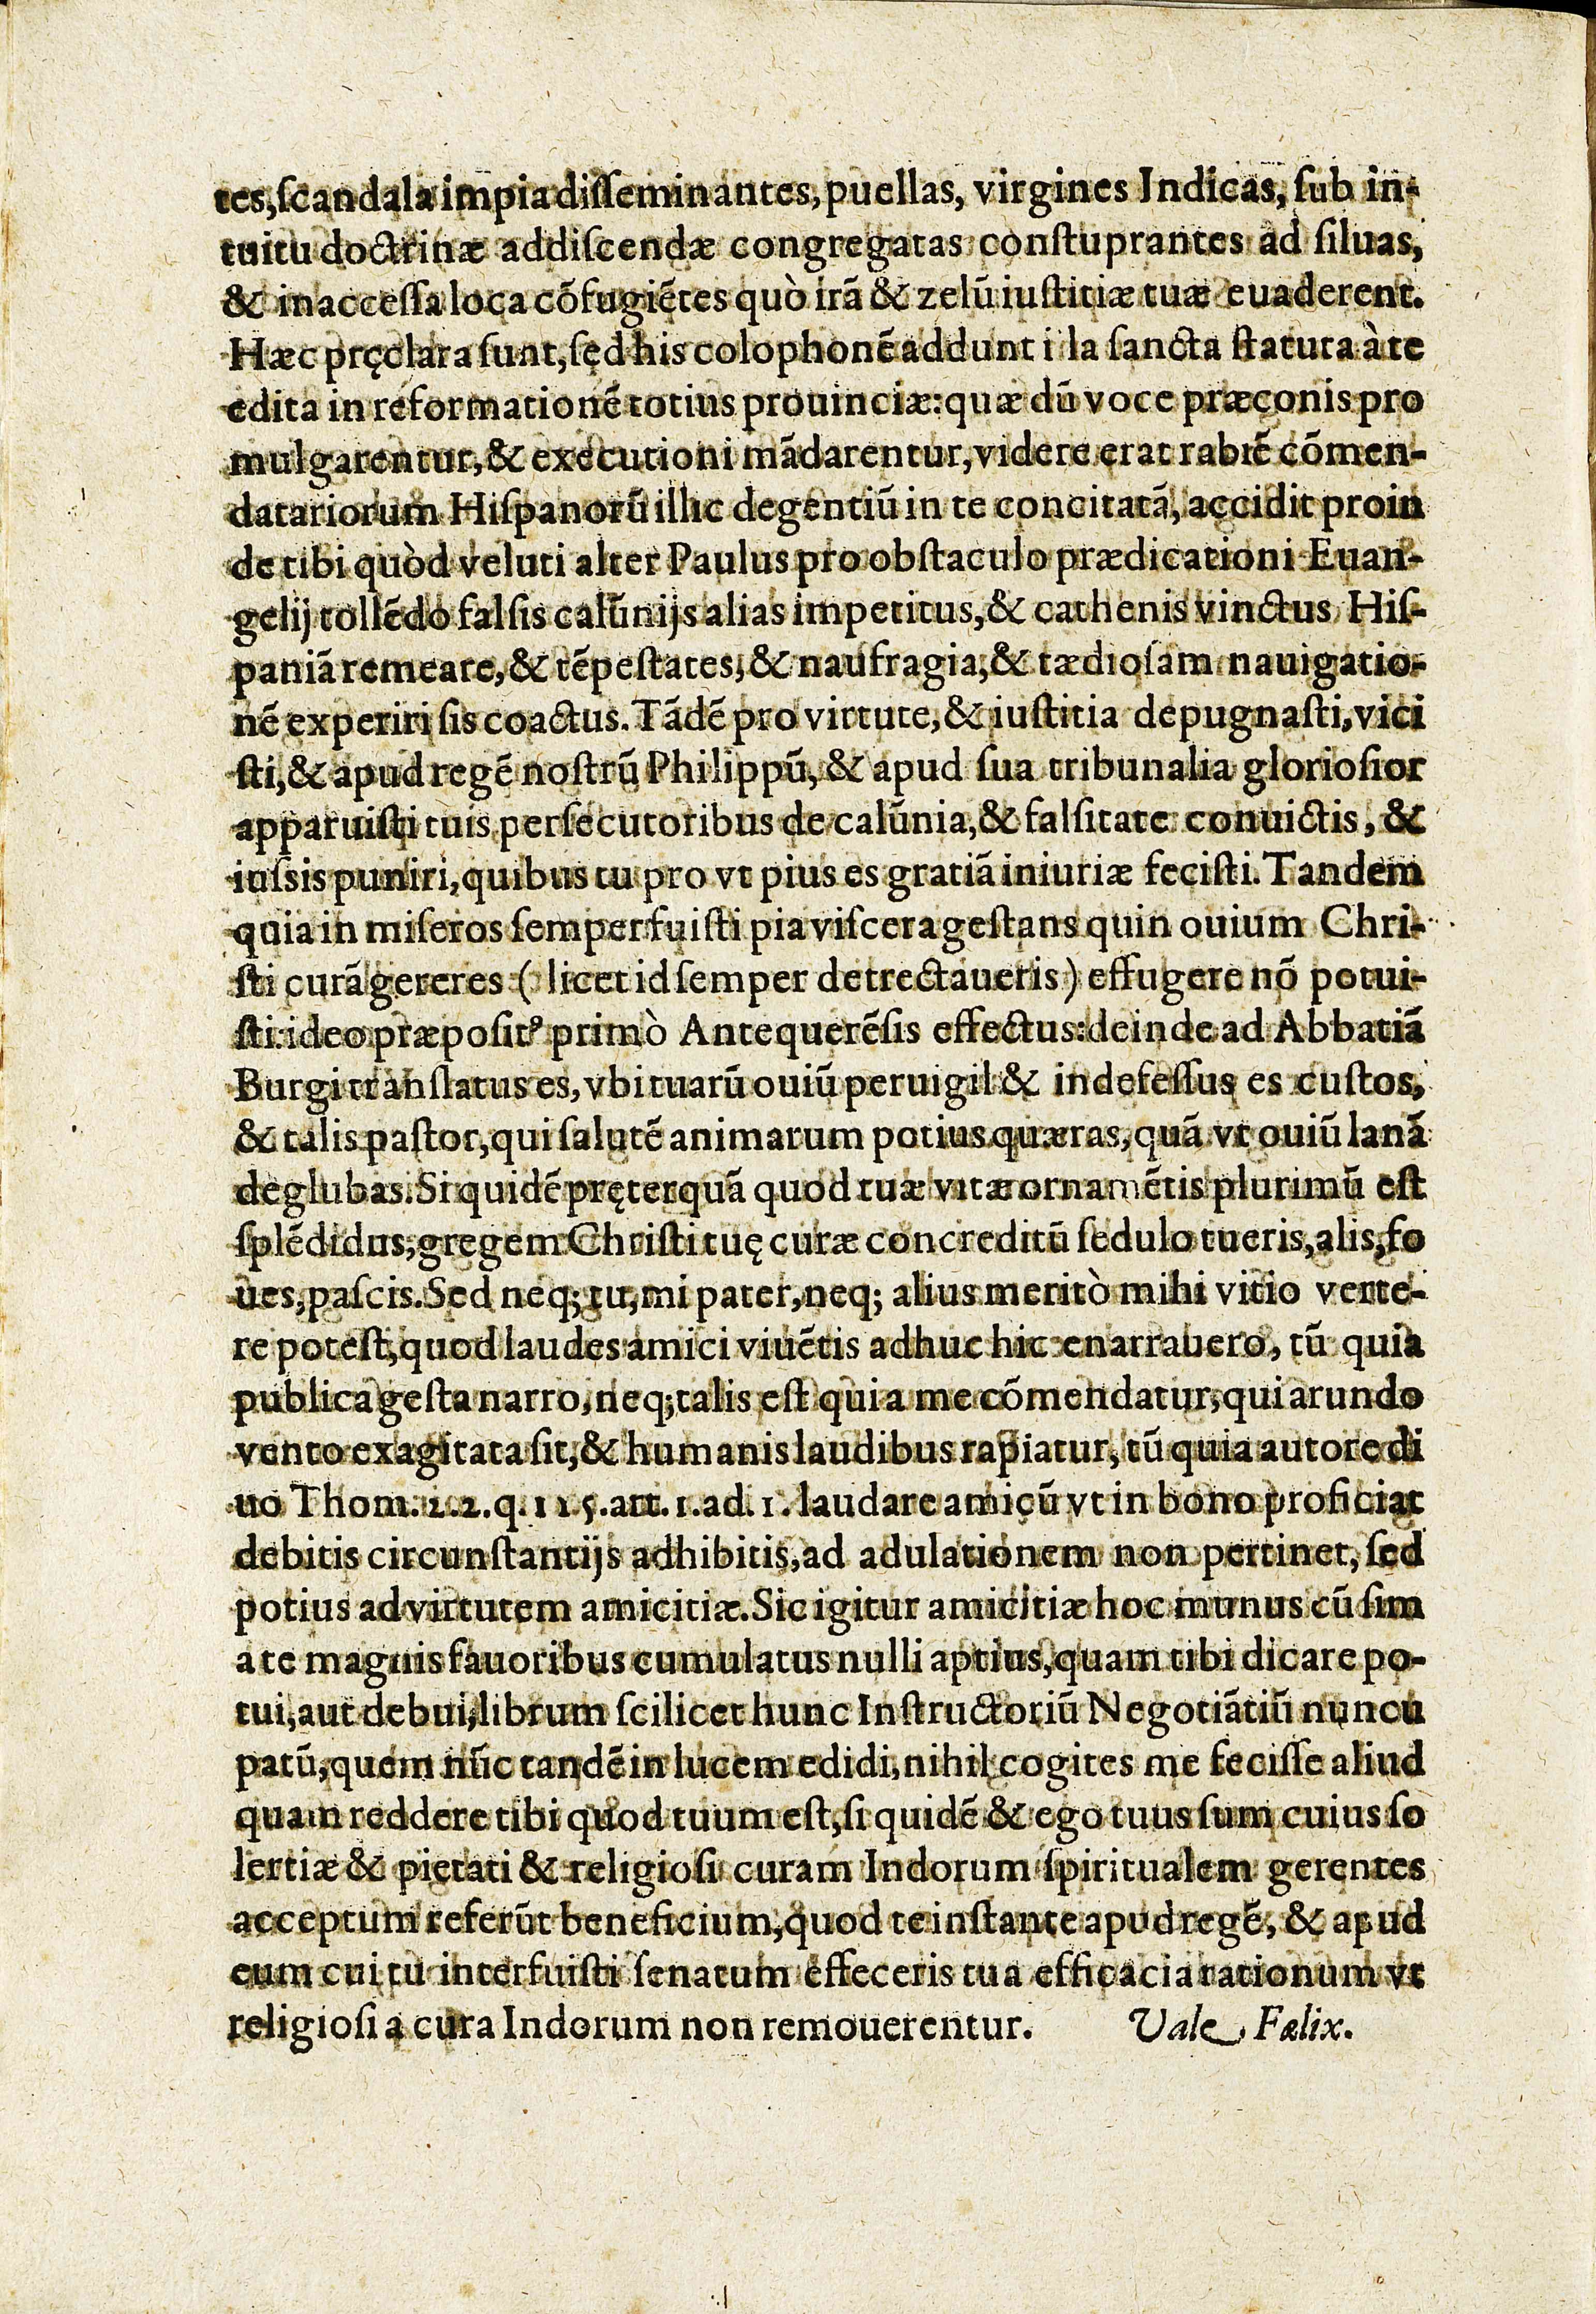 tes,ſcandala impia diſſeminantes,puellas, virgines Indicas, ſub in-
tuitu doctrinæ addiſcendæ congregatas conſtuprantes ad ſiluas,
& inacceſſa loca cõfugiẽtes quò irã & zelũ iuſtitiæ tuæ euaderent.
Hæc pręclara ſunt,ſed his colophonẽ addunt i la ſancta ſtatuta à te
edita in reformationẽ totius prouinciæ:quæ dũ voce præconis pro
mulgarentur,& executioni mãdarentur,videre erat rabiẽ cõmen-
datariorum Hiſpanorũ illic degentiũ in te concitatã, accidit proin
de tibi quòd veluti alter Paulus pro obſtaculo prædicationi Euan-
gelij tollẽdo falſis calũnijs alias impetitus,& cathenis vinctus Hiſ-
paniã remeare,& tẽpeſtates,& naufragia,& tædioſam nauigatio-
nẽ experiri ſis coactus.Tãdẽ pro virtute,& iuſtitia depugnaſti,vici
ſti,& apud regẽ noſtrũ Philippũ, & apud ſua tribunalia glorioſior
apparuiſti tuis perſecutoribus de calũnia,& falſitate conuictis, &
iuſsis puniri,quibus tu pro vt pius es gratiã iniuriæ feciſti.Tandem
quia in miſeros ſemper fuiſti pia viſcera geſtans quin ouium Chri-
ſti curã gereres ( licet id ſemper detrectaueris) effugere nõ potui-
ſti:ideo præpoſitꝰ primò Antequerẽſis effectus:deinde ad Abbatiã
Burgi tranſlatus es, vbi tuarũ ouiũ peruigil & indefeſſus es cuſtos,
& talis paſtor,qui ſalutẽ animarum potius quæras,quã vt ouiũ lanã
deglubas.Si quidẽ pręterquã quod tuæ vitæ ornamẽtis plurimũ eſt
ſplẽdidus,gregem Chriſti tuę curæ concreditũ ſedulo tueris,alis,fo
ues,paſcis.Sed neq; tu,mi pater,neq; alius meritò mihi vitio verte-
re poteſt,quod laudes amici viuẽtis adhuc hic enarrauero, tũ quia
publica geſta narro,neq; talis eſt qui a me cõmendatur,qui arundo
vento exagitata ſit,& humanis laudibus rapiatur, tũ quia autore di
uo Thom.2.2.q.115.art.1.ad.1.laudare amicũ vt in bono proficiat
debitis circunſtantijs adhibitis,ad adulationem non pertinet, ſed
potius ad virtutem amicitiæ.Sic igitur amicitiæ hoc munus cũ ſim
a te magnis fauoribus cumulatus nulli aptius,quam tibi dicare po-
tui,aut debui,librum ſcilicet hunc Inſtructoriũ Negotiãtiũ nuncu
patũ,quem nũc tandẽ in lucem edidi,nihil cogites me feciſſe aliud
quam reddere tibi quod tuum eſt,ſi quidẽ & ego tuus ſum cuius ſo
lertiæ & pietati & religioſi curam Indorum ſpiritualem gerentes
acceptum referũt beneficium,quod te inſtante apud regẽ, & apud
eum cui tu interfuiſti ſenatum effeceris tua efficacia rationum vt
religioſi a cura Indorum non remouerentur. Vale Fælix.